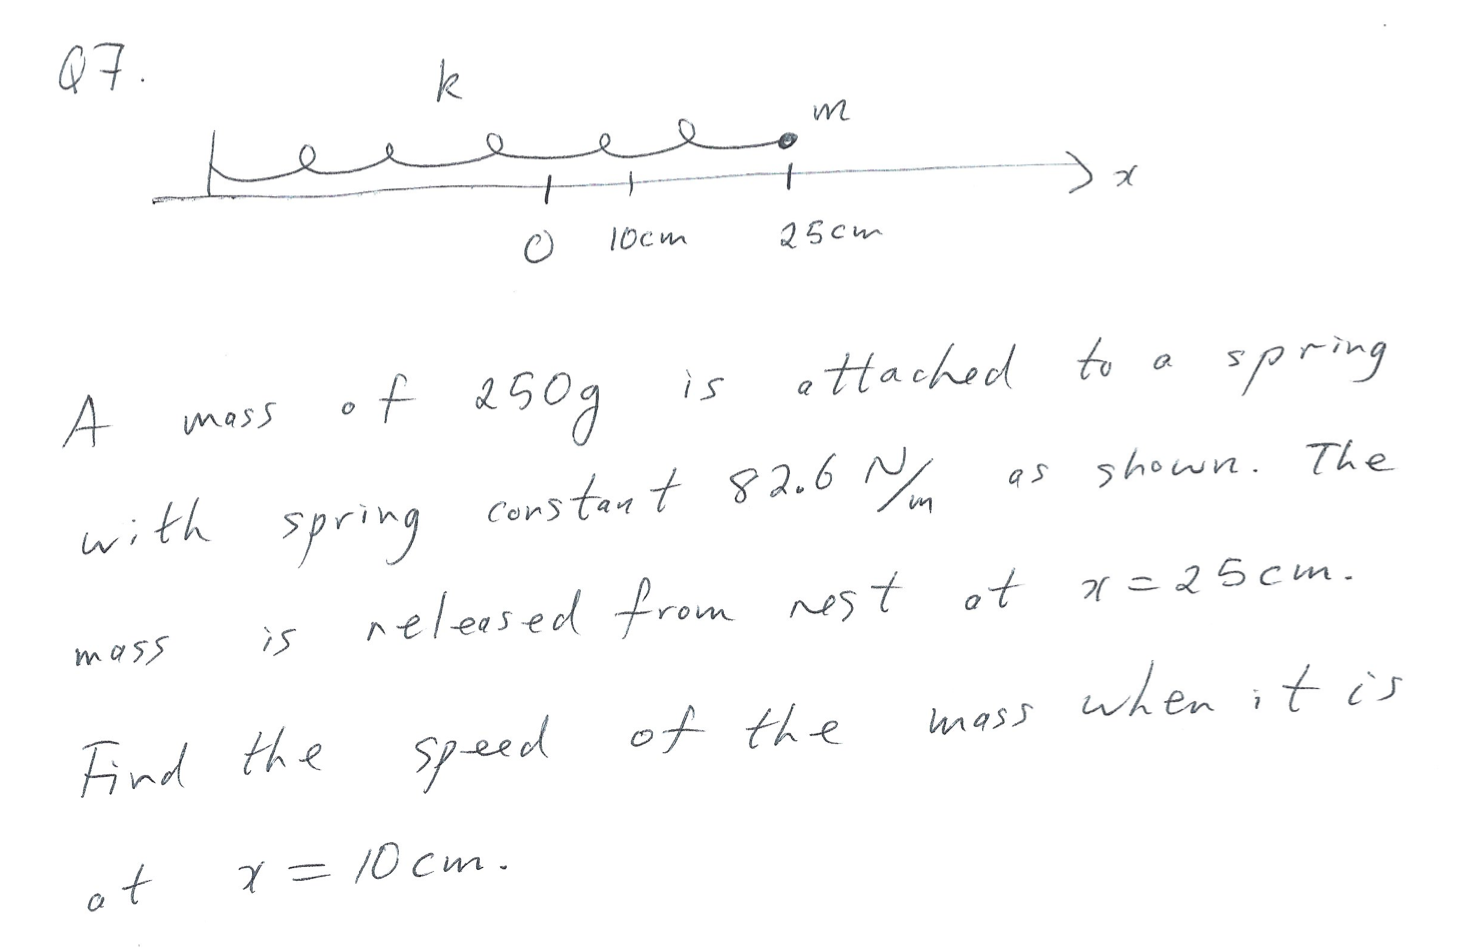 Q7.
k
m
x
0 10cm 25cm
A mass of 250g is attached to a spring
with spring constant 82.6 N/m as shown. The
mass is released from rest at x = 25cm.
Find the speed of the mass when it is
at x = 10cm.